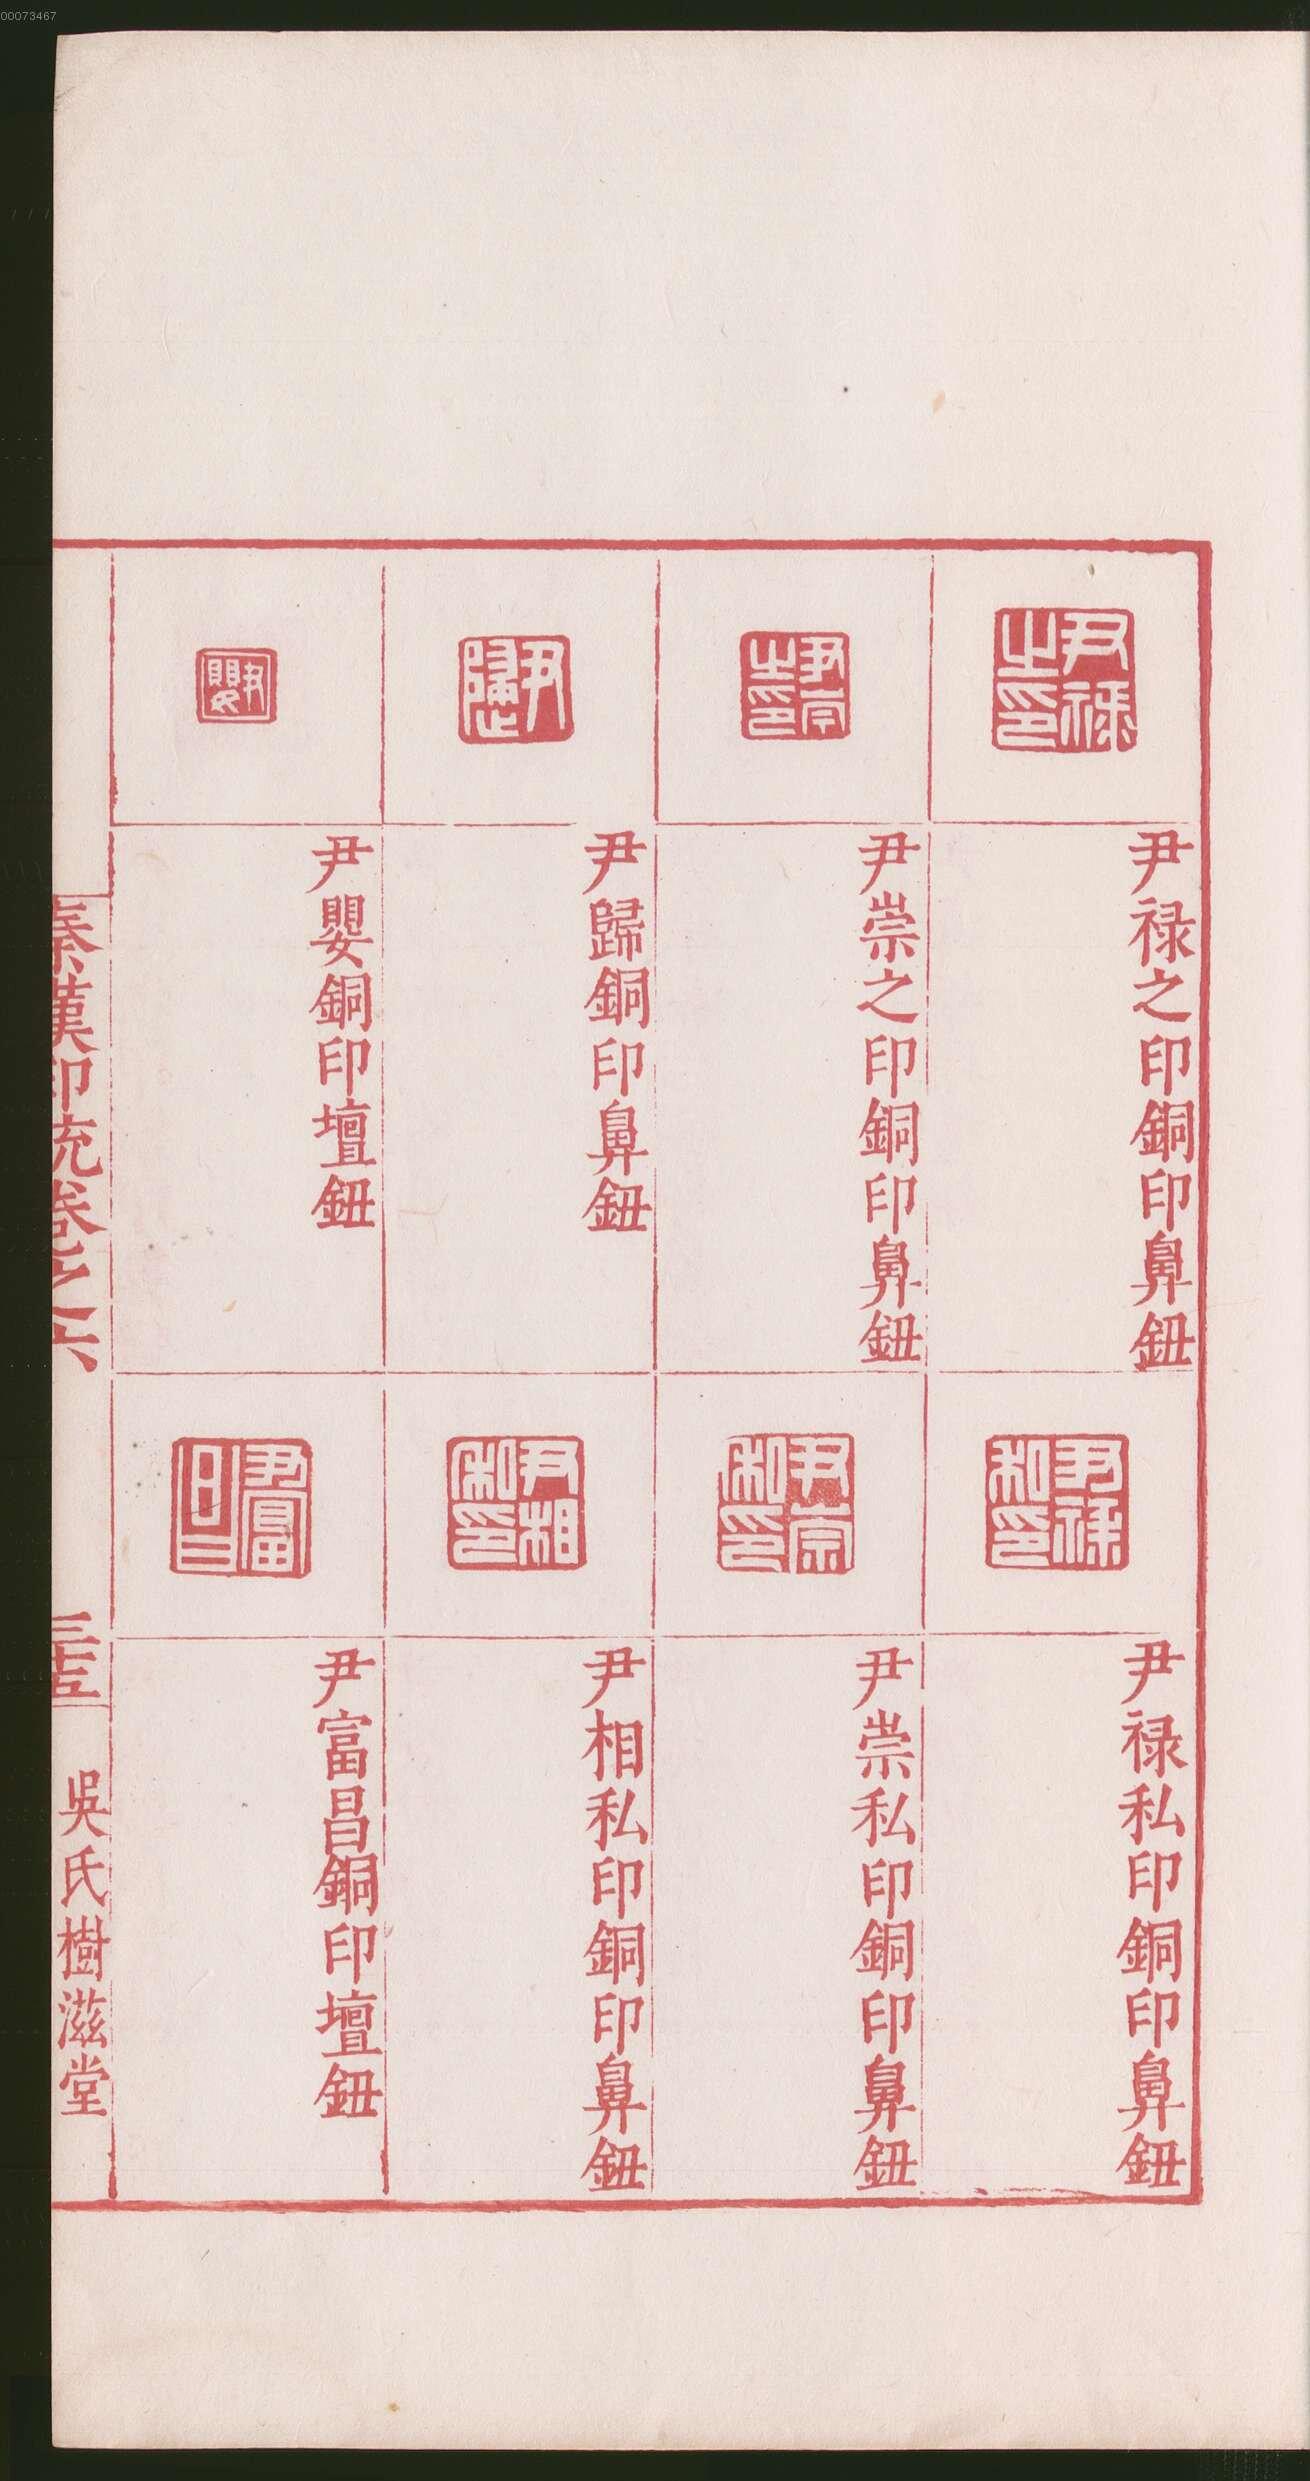 00073467
尹禄之印
尹禄之印銅印鼻鈕
尹崇之印
尹崇之印銅印鼻鈕
尹歸
尹歸銅印鼻鈕
尹嬰
尹嬰銅印壇鈕
尹禄私印
尹禄私印銅印鼻鈕
尹崇私印
尹崇私印銅印鼻鈕
尹相私印
尹相私印銅印鼻鈕
尹富昌
尹富昌銅印壇鈕
秦漢印统卷之六
吳氏樹滋堂